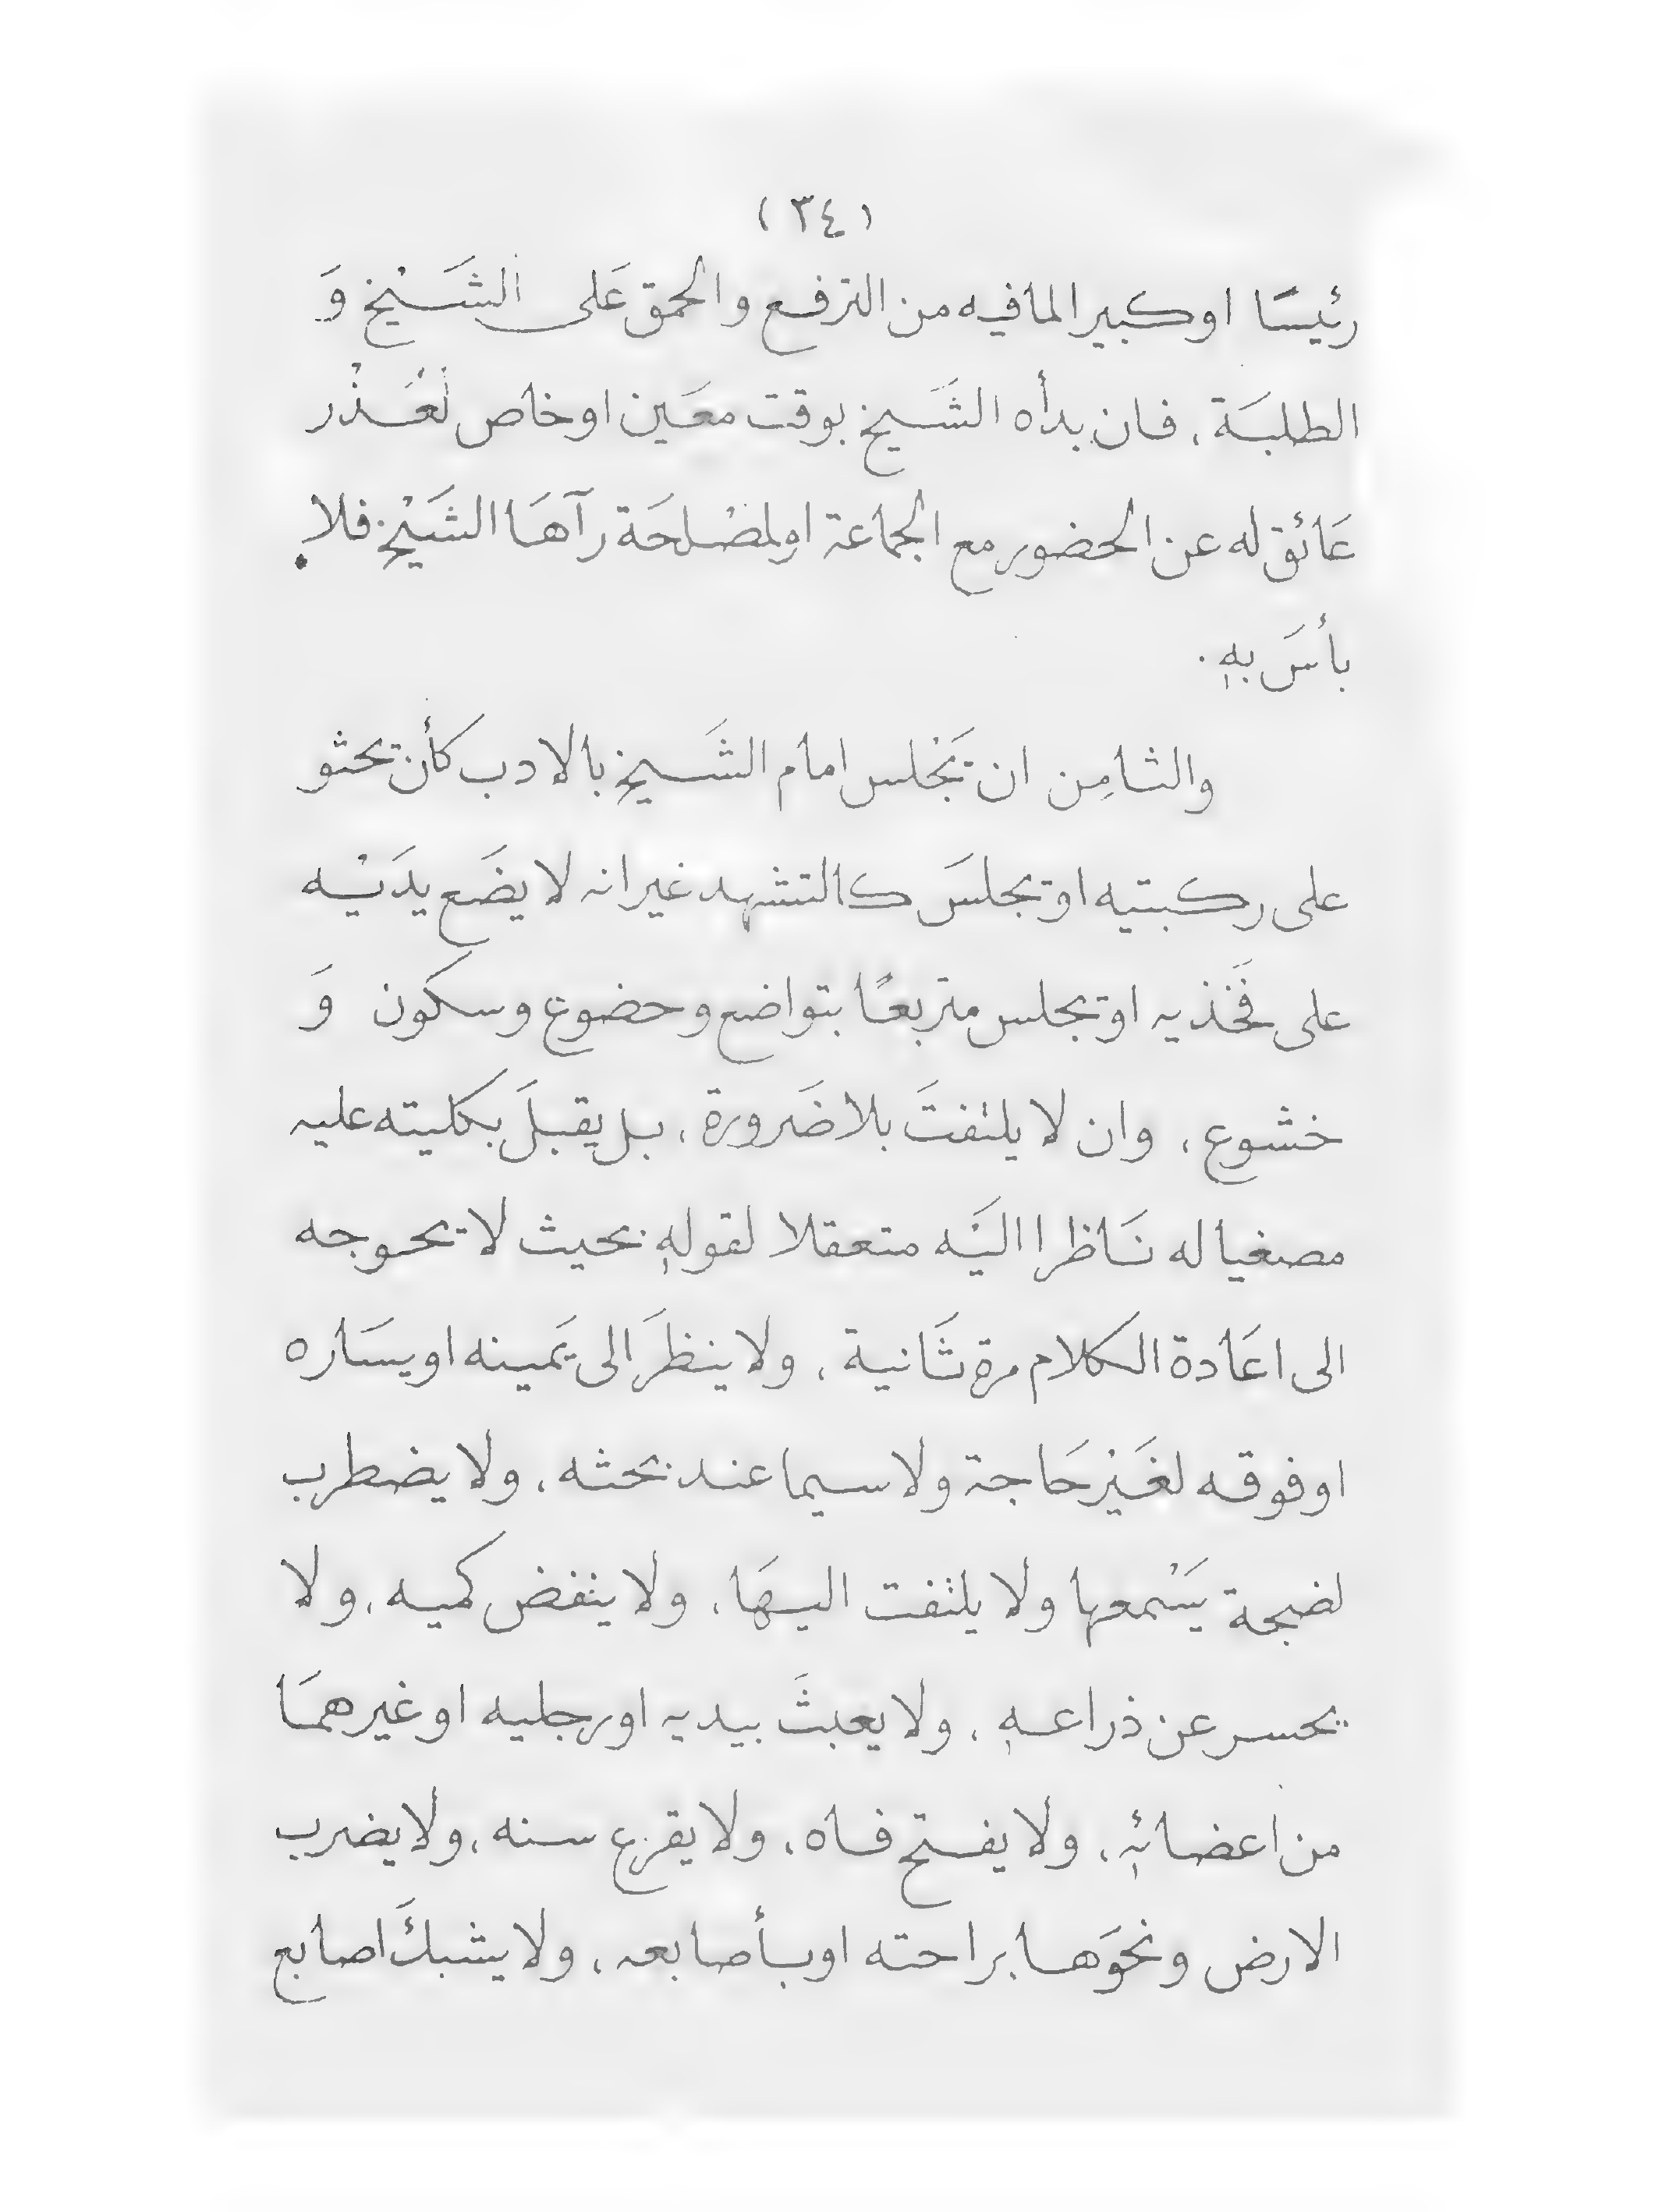 (٣٤)
رئيسًا اوكبيرا لما فيه من الترفع والحمق عَلى الشَّيْخ وَ
الطلبَة ، فان بدأه الشَّيخ بوقت معَين اوخاص لعُذْر
عَائق له عن الحضور مع الجماعة اولمصْلحَة رآهَا الشَّيْخ فلا
بأسَ بهٖ .
والثامِن ان تَجْلس امام الشَّيخ بالادب كأن تحثو
على ركبتيه اوتجلسَ كالتشهد غير انه لا يضَع يدَيْه
على فَخَذيه اوتجلس متربعًا بتواضع وحضوع وسكون وَ
خشوع ، وان لا يلتفتَ بلا ضَرورة ، بل يقبلَ بكليته عليه
مصغيا له نَاظرا اليَْه متعقلا لقولهٖ بحيث لا تحوجه
الى اعَادة الكلام مرة ثَانية ، ولا ينظرَ الى يَمينه اويسَاره
اوفوقه لغَيْر حَاجة ولا سيما عند بحثه ، ولا يضطرب
لضجة يَسْمعها ولا يلتفت اليهَا ، ولا ينفض كميه ، ولا
يحسر عن ذراعهٖ ، ولا يعبثَ بيديه اورجليه اوغيرهمَا
من اعضائهٖ ، ولا يفتح فاه ، ولا يقرع سنه ، ولا يضرب
الارض ونحوَها براحته اوبأصابعه ، ولا يشبكَ اصابع